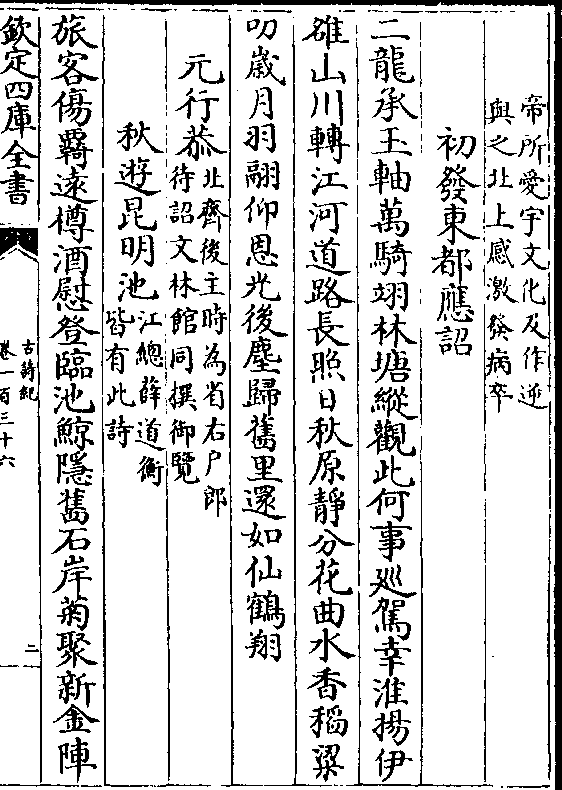 帝所愛宇文化及作逆
與之北上感激發病卒
初發東都應詔
二龍承玉軸萬騎翊林塘縱觀此何事巡駕幸淮揚伊
雒山川轉江河道路長照日秋原靜分花曲水香稻粱
叨歲月羽翮仰恩光後塵歸舊里還如仙鶴翔
元行恭北齊後主時為省右户郎
待詔文林館同撰御覽
秋遊昆明池江總薛道衡
皆有此詩
旅客傷羇遠樽酒慰登臨池鯨隱舊石岸菊聚新金陣
欽定四庫全書
古詩紀
卷一百三十六
二